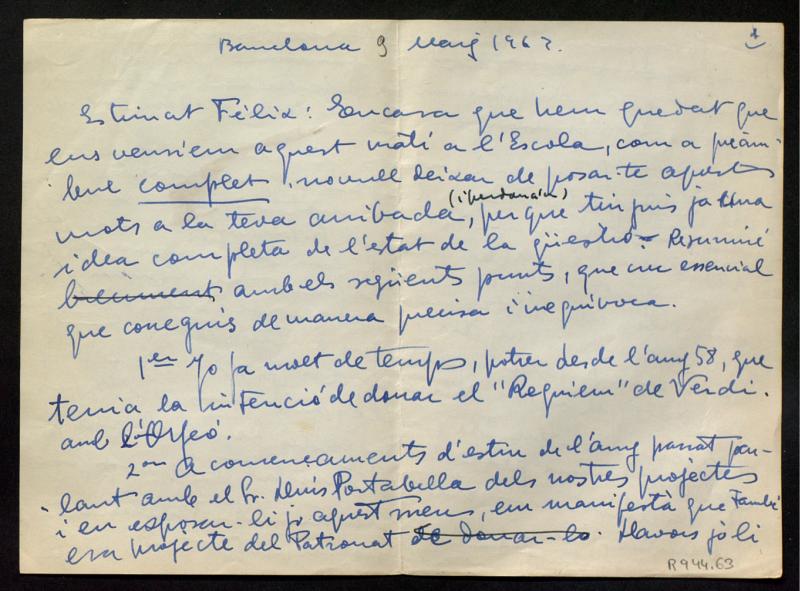 Barcelona 9 Maig 1963.
1
Estimat Fèlix: Encara que hem quedat que
ens veuriem aquest matí a l'Escola, com a preàm-
bul complet, no vull deixar de posar-te aquests
mots a la teva arribada, (i perdona'm) perque tinguis ja una
idea completa de l'estat de la qüestió. Resumiré
breument amb els següents punts, que crec essencial
que coneguis de manera precisa i inequívoca.
1er Jo ja molt de temps, potser desde l'any 58, que
tenia la intenció de donar el "Requiem" de Verdi.
amb l'Orfeó.
2on A començaments d'estiu de l'any passat par-
lant amb el Sr. Lluís Portabella dels nostres projectes
i en exposar-li jo aquest meu, em manifestà que també
era projecte del Patronat de donar-lo. Llavors jo li
R944.63